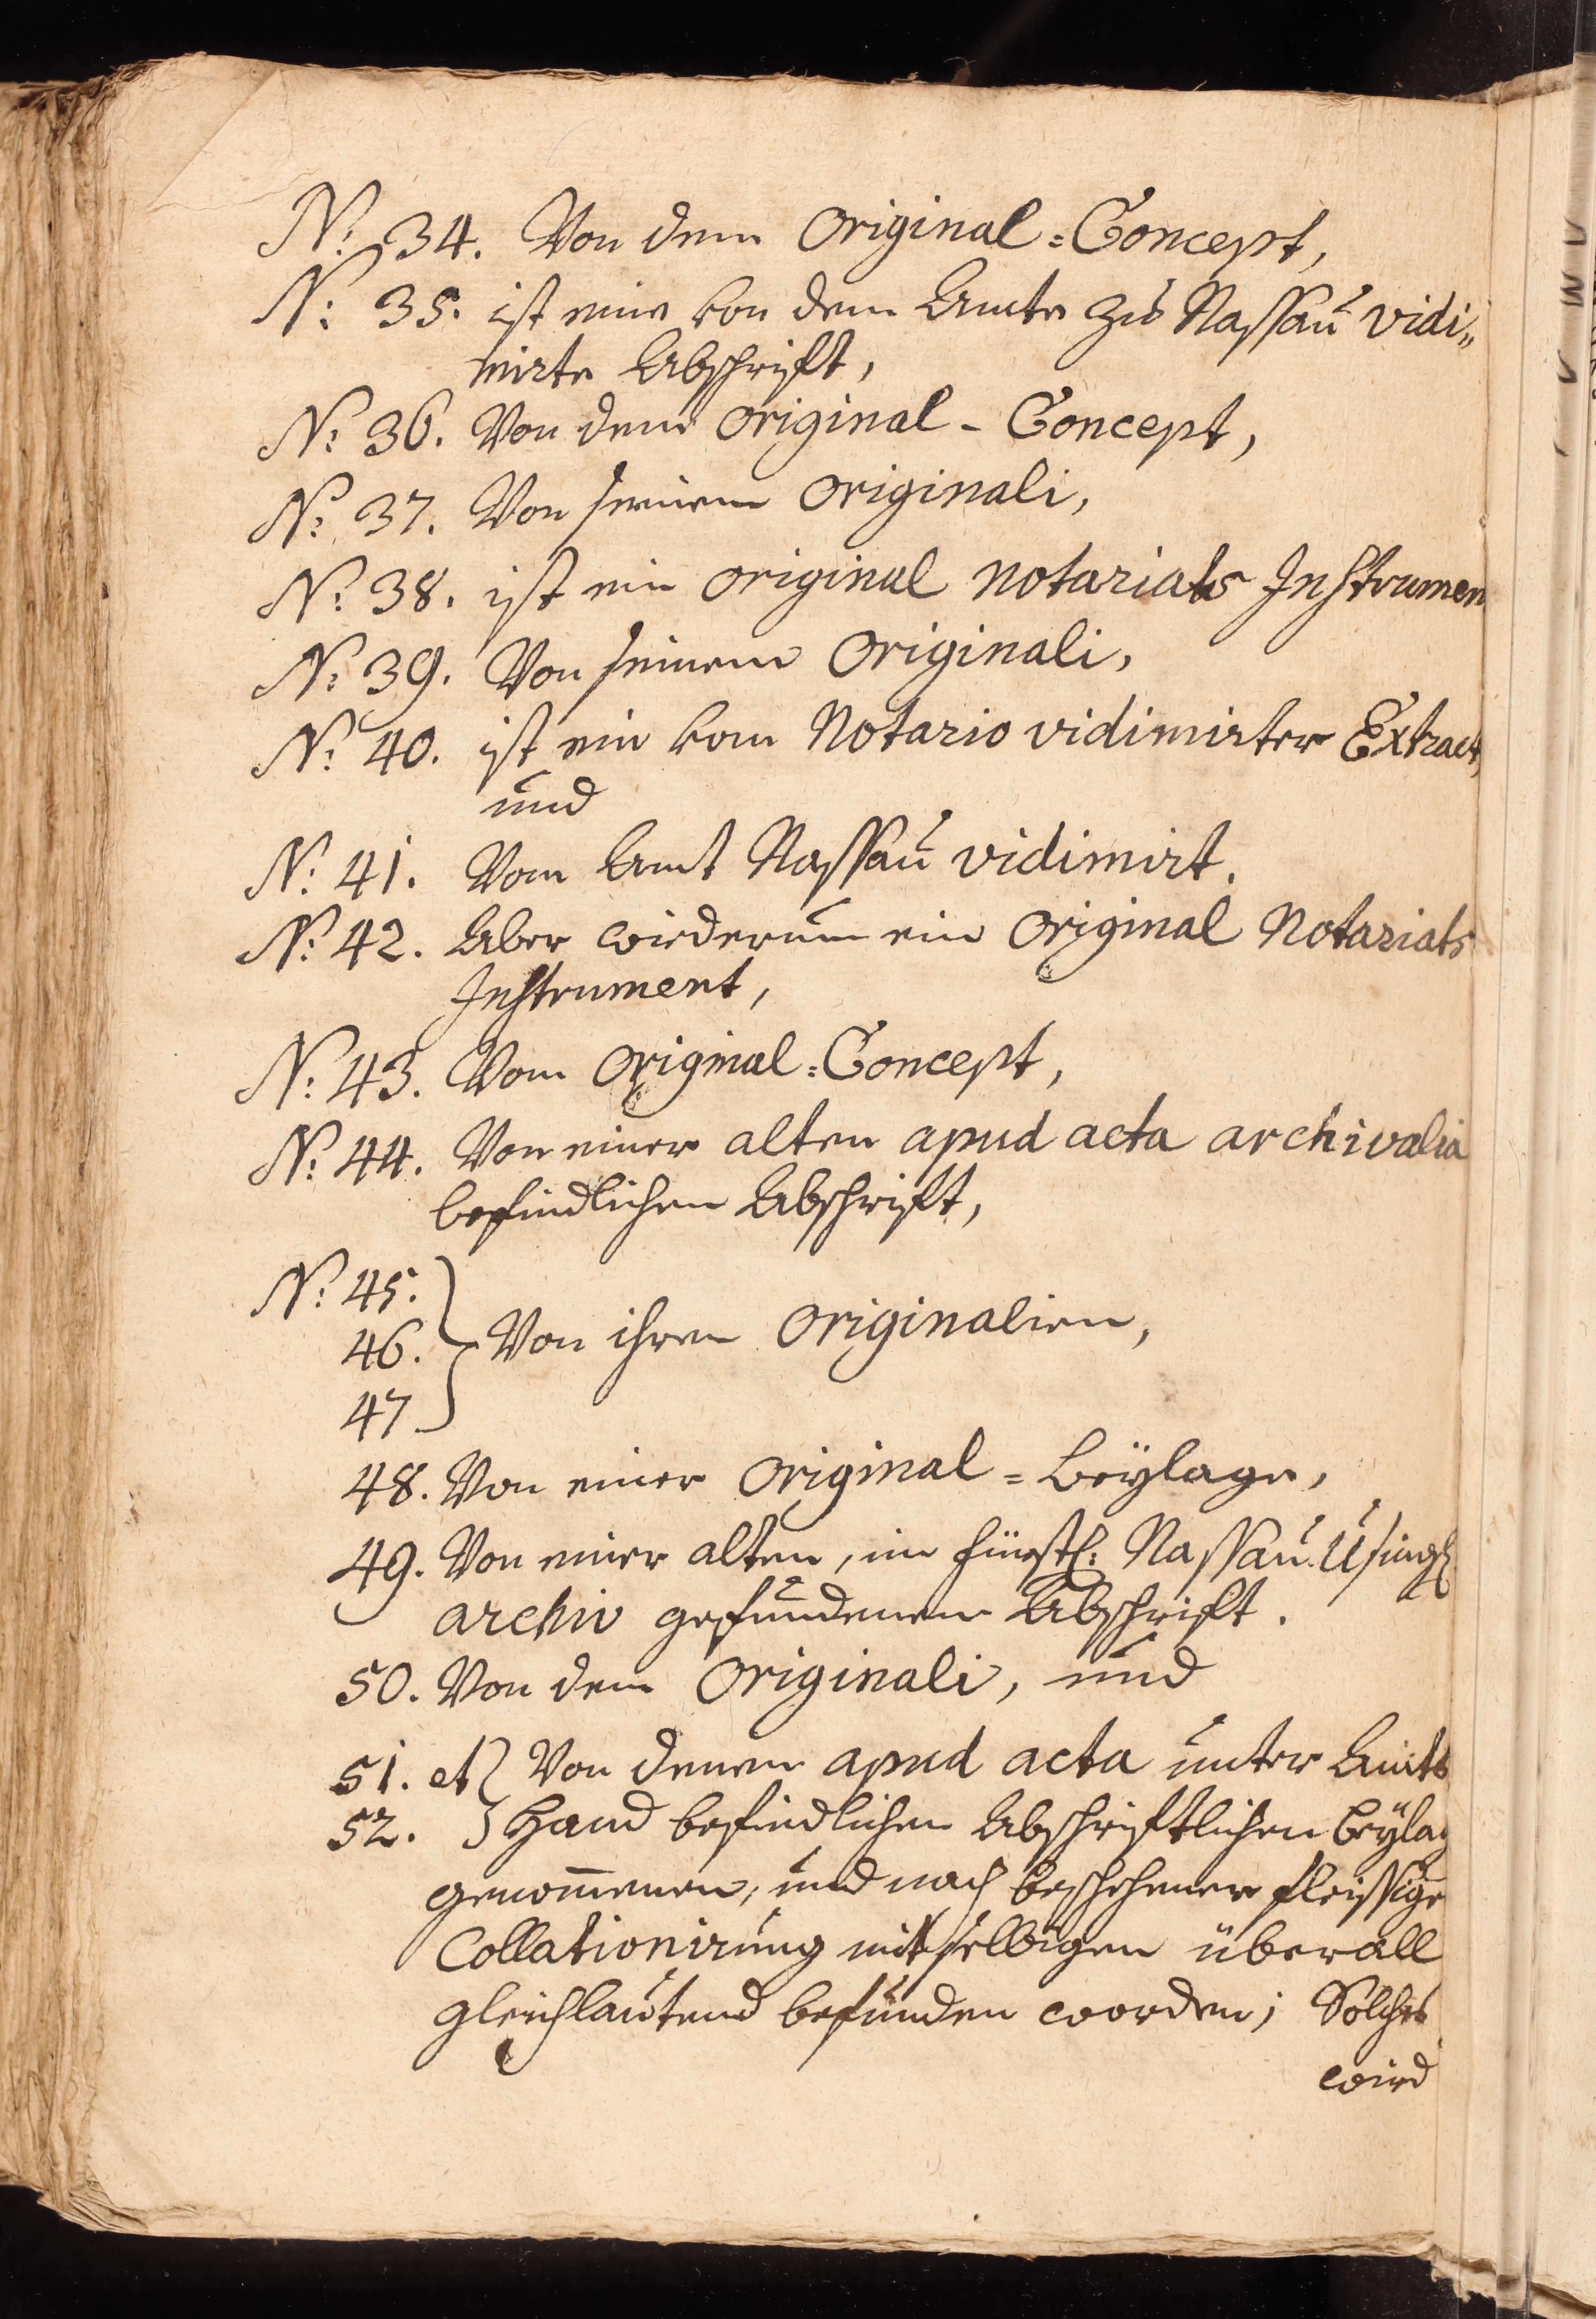 N: 34. Von dem Original=Concept,
N: 35. ist eine von dem Amte zu Nassau vidi„
mirte Abschrift,
N: 36. Von dem Original-Concept,
N: 37. Von seinem Originali,
N: 38. ist ein original notariats Instrumen
N: 39. Von seinem Originali,
N: 40. ist ein vom Notario vidimirter Extract,
und
N: 41. Vom Amt Nassau vidimirt.
N: 42. Aber wiederum ein Original Notariats
Instrument,
N: 43. Vom Original=Concept,
N: 44. Von einer alten apud acta archivalia
befindlichen Abschrift,
N: 45.
46. Von ihren Originalien,
47
48. Von einer Original=Beÿlage,
49. Von einer alten, im fürstl: Nassau. Usingl
archiv gefundenen Abschrift.
50. Von dem Originali, und
51. et Von denen apud acta unter Amts
52. Hand befindlichen Abschriftlichen Beÿlag
genom̅enen, und nach beschehener fleissige
Collationirung mit selbigen überall
gleichlautend befunden worden; Solches
wird